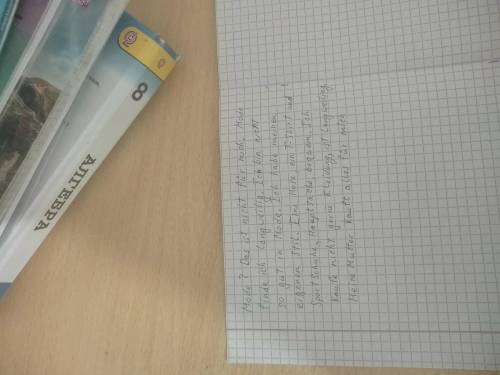 АЛГЕБРА
8
Mode? Das ist nicht für mich. Mode
finde ich langweilig. Ich bin nicht
so gut in Mode. Ich habe meinen
eigenen Stil. Eine Hose ein T-Shirt und
Sportschuhe, Hauptsache bequem. Ich
kaufe nicht gerne Kleidung, ist langweilig.
Meine Mutter kauft alles für mich